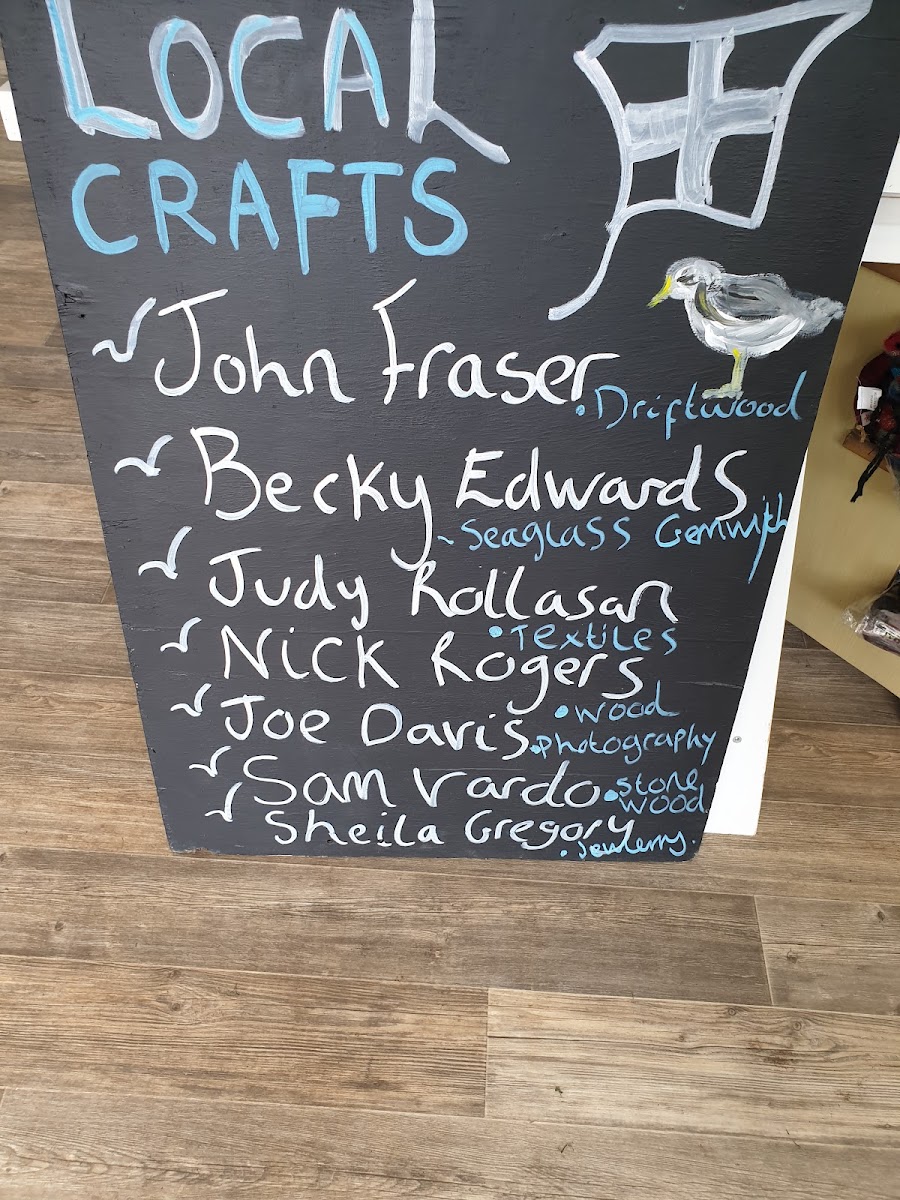 LOCAL
CRAFTS
John Fraser
• Driftwood
Becky Edwards
~ Seaglass Gemwith
Judy Rollasan
• Textiles
Nick Rogers
• wood
Joe Davis
• photography
Sam Vardo
• stone
wood
Sheila Gregory
• Jewlerry.